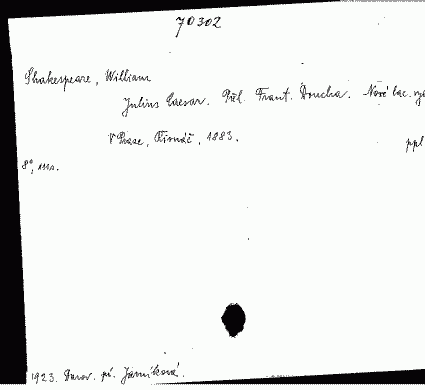 70302
Shakespeare, William
Julius Caesar. Přel. Frant. Doucha. Nové lac. vy
V Praze, Kivnáč, 1883.
ppl
8°, 111 s.
1923. Darov. pí. Jarníková.